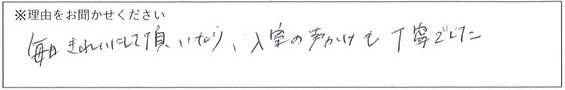 ※理由をお聞かせください
毎日きれいにして頂いたり、入室の声かけも丁寧でした